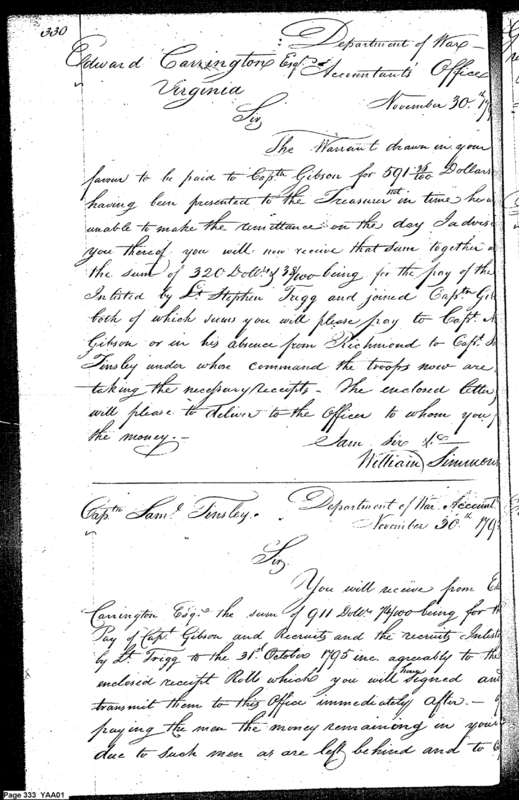 330
Department of War
Edward Carrington Esqr. Accountants Office
Virginia
November 30.th 179
Sir,
The Warrant drawn in your
favour to be paid to Captn Gibson for 591 Dollars
having been presented to the Treasurer not in time
unable to make the remittance on the day I advise
you thereof you will now receive that sum together
the sum of 320 Dollrs & 38/100 being for the pay of the
Inlisted by Lt. Stephen Trigg and joined Captn Gib
both of which sums you will please pay to Capt.
Gibson or in his absence from Richmond to Capt. S
Tinsley under whose command the troops now are
taking the necessary receipts - The enclosed letter
will please to deliver to the Officer to whom you
the money. -
I am Sir &c
William Simmon
Captn Saml. Tinsley.
Department of War Account
November 30.th 179
Sir,
You will receive from Ed
Carrington Esqr. the sum of 911 Dollrs 74/100 being for th
Pay of Capt. Gibson and Recruits and the recruits Inliste
by Lt. Trigg to the 31st October 1795 inc. agreably to the
enclosed receipt Rolls which you will have signed and
transmit them to this Office immediately after. -
paying the men the money remaining in your
due to such men as are left behind and to
Page 333 YAA01